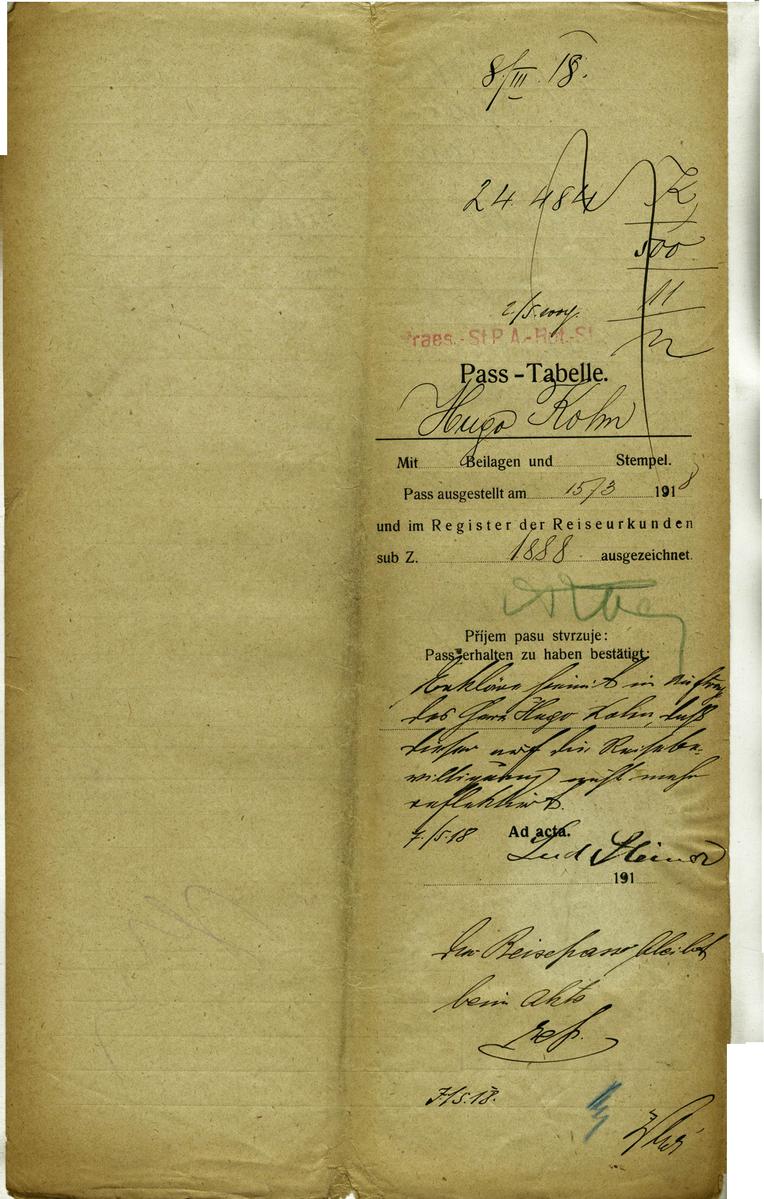 8/III 18.
24 484
500
11
2/5.
Praes.-St.P.A.-
Pass-Tabelle.
Hugo Kohn
Mit Beilagen und Stempel.
Pass ausgestellt am 15/3 1918
und im Register der Reiseurkunden
sub Z. 1888 ausgezeichnet.
Příjem pasu stvrzuje:
Pass erhalten zu haben bestätigt:
Erkläre hiemit im Auftrag
des Herrn Hugo Kohn, daß
dieser auf die Reisebe-
willigung nicht mehr
reflektirt.
7/5.18 Ad acta.
Lud Steiner
191
Der Reisepass bleibt
beim Akte
7/5.18.